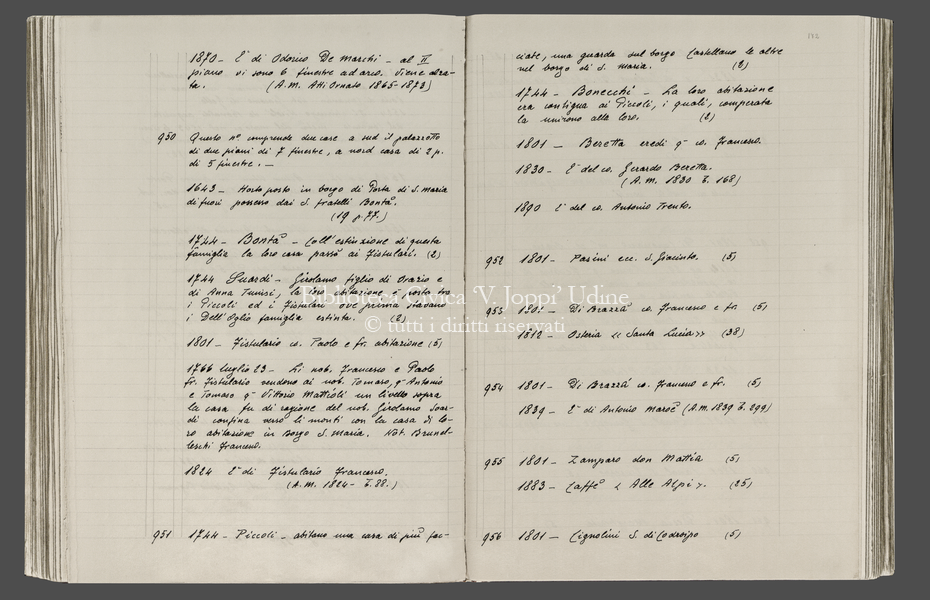 1870 - E' di Odorico De Marchi - al II
piano vi sono 6 finestre ad arco. Viene alza-
ta. (A.M. Atti Ornato 1865-1873)
950 Questo n° comprende due case a sud il palazzotto
di due piani di 7 finestre, a nord casa di 2 p.
di 5 finestre. -
1643 - Horto posto in borgo di Porta di S. Maria
di fuori possesso dai S. fratelli Bontà.
(19 p. 77.)
1744 - Bontà - Coll'estinzione di questa
famiglia la loro casa passò ai Fistulari. (2)
1744 Suardi - Girolamo, figlio di Orazio e
di Anna Tunisi, la loro abitazione è posta tra
i Piccoli ed i Fistulari ove prima stavano
i Dell'Oglio famiglia estinta. (2)
1801 - Fistulario co. Paolo e fr. abitazione (5)
1766 luglio 23 - Li nob. Francesco e Paolo
fr. Fistulario vendono ai nob. Tomaso, q. Antonio
e Tomaso q. Vittorio Mattioli un livello sopra
la casa fu di ragione del nob. Girolamo Soar-
di confina verso li monti con la casa di lo-
ro abitazione in Borgo S. Maria. Not. Brunel-
leschi Francesco.
1824 E' di Fistulario Francesco.
(A.M. 1824 - F. 88.)
951 1744 - Piccoli - abitano una casa di più fac-
132
ciate, una guarda sul borgo Castellano le altre
nel borgo di S. Maria. (2)
1744 - Bonecchi - La loro abitazione
era contigua ai Piccoli, i quali, comperata
la unirono alla loro. (2)
1801 - Beretta eredi q. co. Francesco.
1830 - E' del co. Gerardo Beretta.
(A.M. 1830 F. 168)
1890 E' del co. Antonio Trento.
952 1801 - Pasini ecc. S. Giacinto. (5)
953 1801 - Di Brazzà co. Francesco e fr. (5)
1812 - Osteria « Santa Lucia » (38)
954 1801 - Di Brazzà co. Francesco e fr. (5)
1839 - E' di Antonio Maroè (A.M. 1839 F. 299)
955 1801 - Zamparo don Mattia (5)
1883 - Caffè « Alle Alpi ». (25)
956 1801 - Cignolini S. di Codroipo (5)
Biblioteca Civica 'V. Joppi' Udine
© tutti i diritti riservati